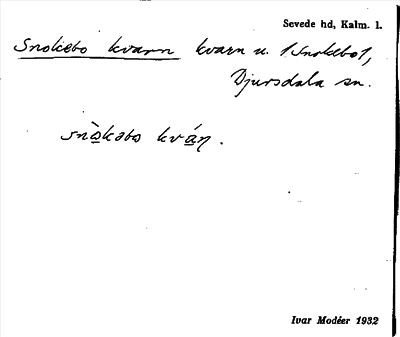 Sevede hd, Kalm. l.
Snokebo kvarn kvarn u. 1 Snokebo 1,
Djursdala sn.
snò̠kabo kvá̠ɳ.
Ivar Modéer 1932